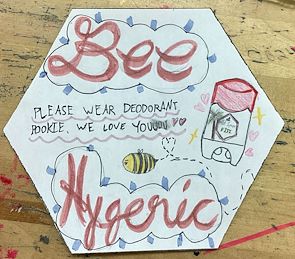 Bee
PLEASE WEAR DEODORANT,
POOKIE, WE LOVE YOUUUU
Hygeric